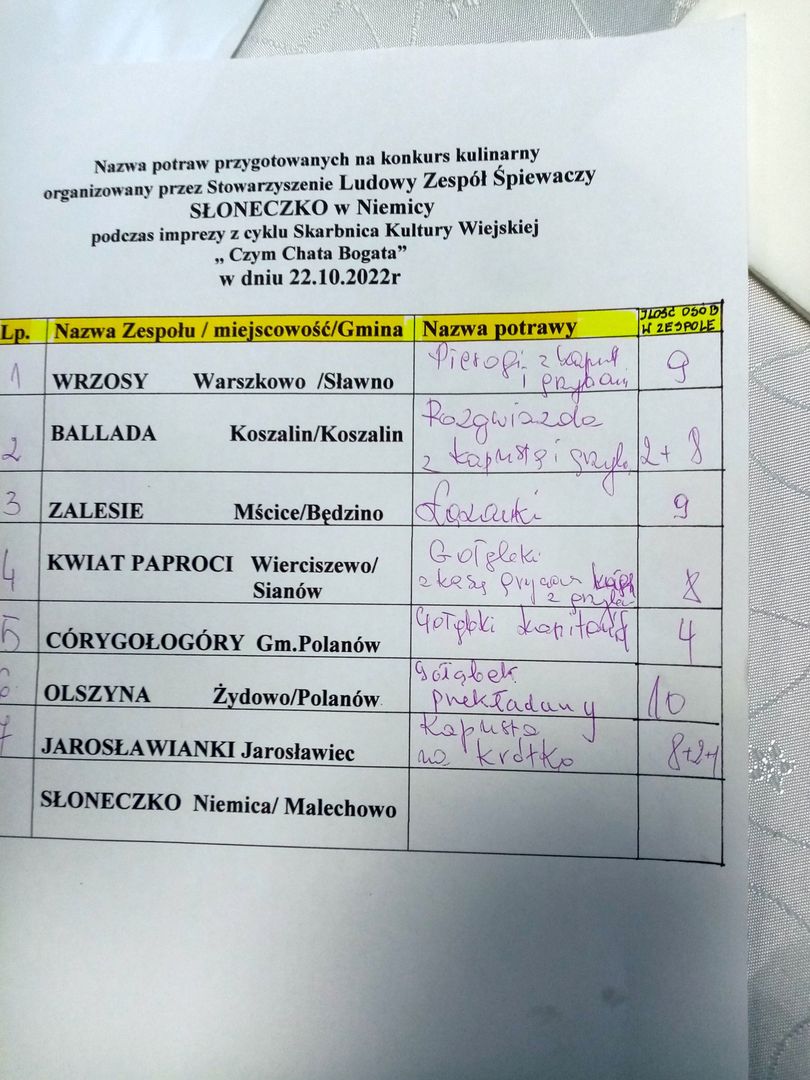 Nazwa potraw przygotowanych na konkurs kulinarny
organizowany przez Stowarzyszenie Ludowy Zespół Śpiewaczy
SŁONECZKO w Niemicy
podczas imprezy z cyklu Skarbnica Kultury Wiejskiej
„ Czym Chata Bogata”
w dniu 22.10.2022r
Lp. Nazwa Zespołu / miejscowość/Gmina Nazwa potrawy ILOŚĆ OSÓB
W ZESPOLE
1 WRZOSY Warszkowo /Sławno Pierogi z kapust
i grzybami 9
2 BALLADA Koszalin/Koszalin Rozgwiazda
z kapustą i 2+8
3 ZALESIE Mścice/Będzino Łazanki 9
4 KWIAT PAPROCI Wierciszewo/
Sianów Gołąbki
z kaszą z 8
5 CÓRYGOŁOGÓRY Gm.Polanów Gołąbki 4
6 OLSZYNA Żydowo/Polanów Gołąbek
przekładany 10
7 JAROSŁAWIANKI Jarosławiec Kapusta
na krótko 8+2+1
SŁONECZKO Niemica/ Malechowo